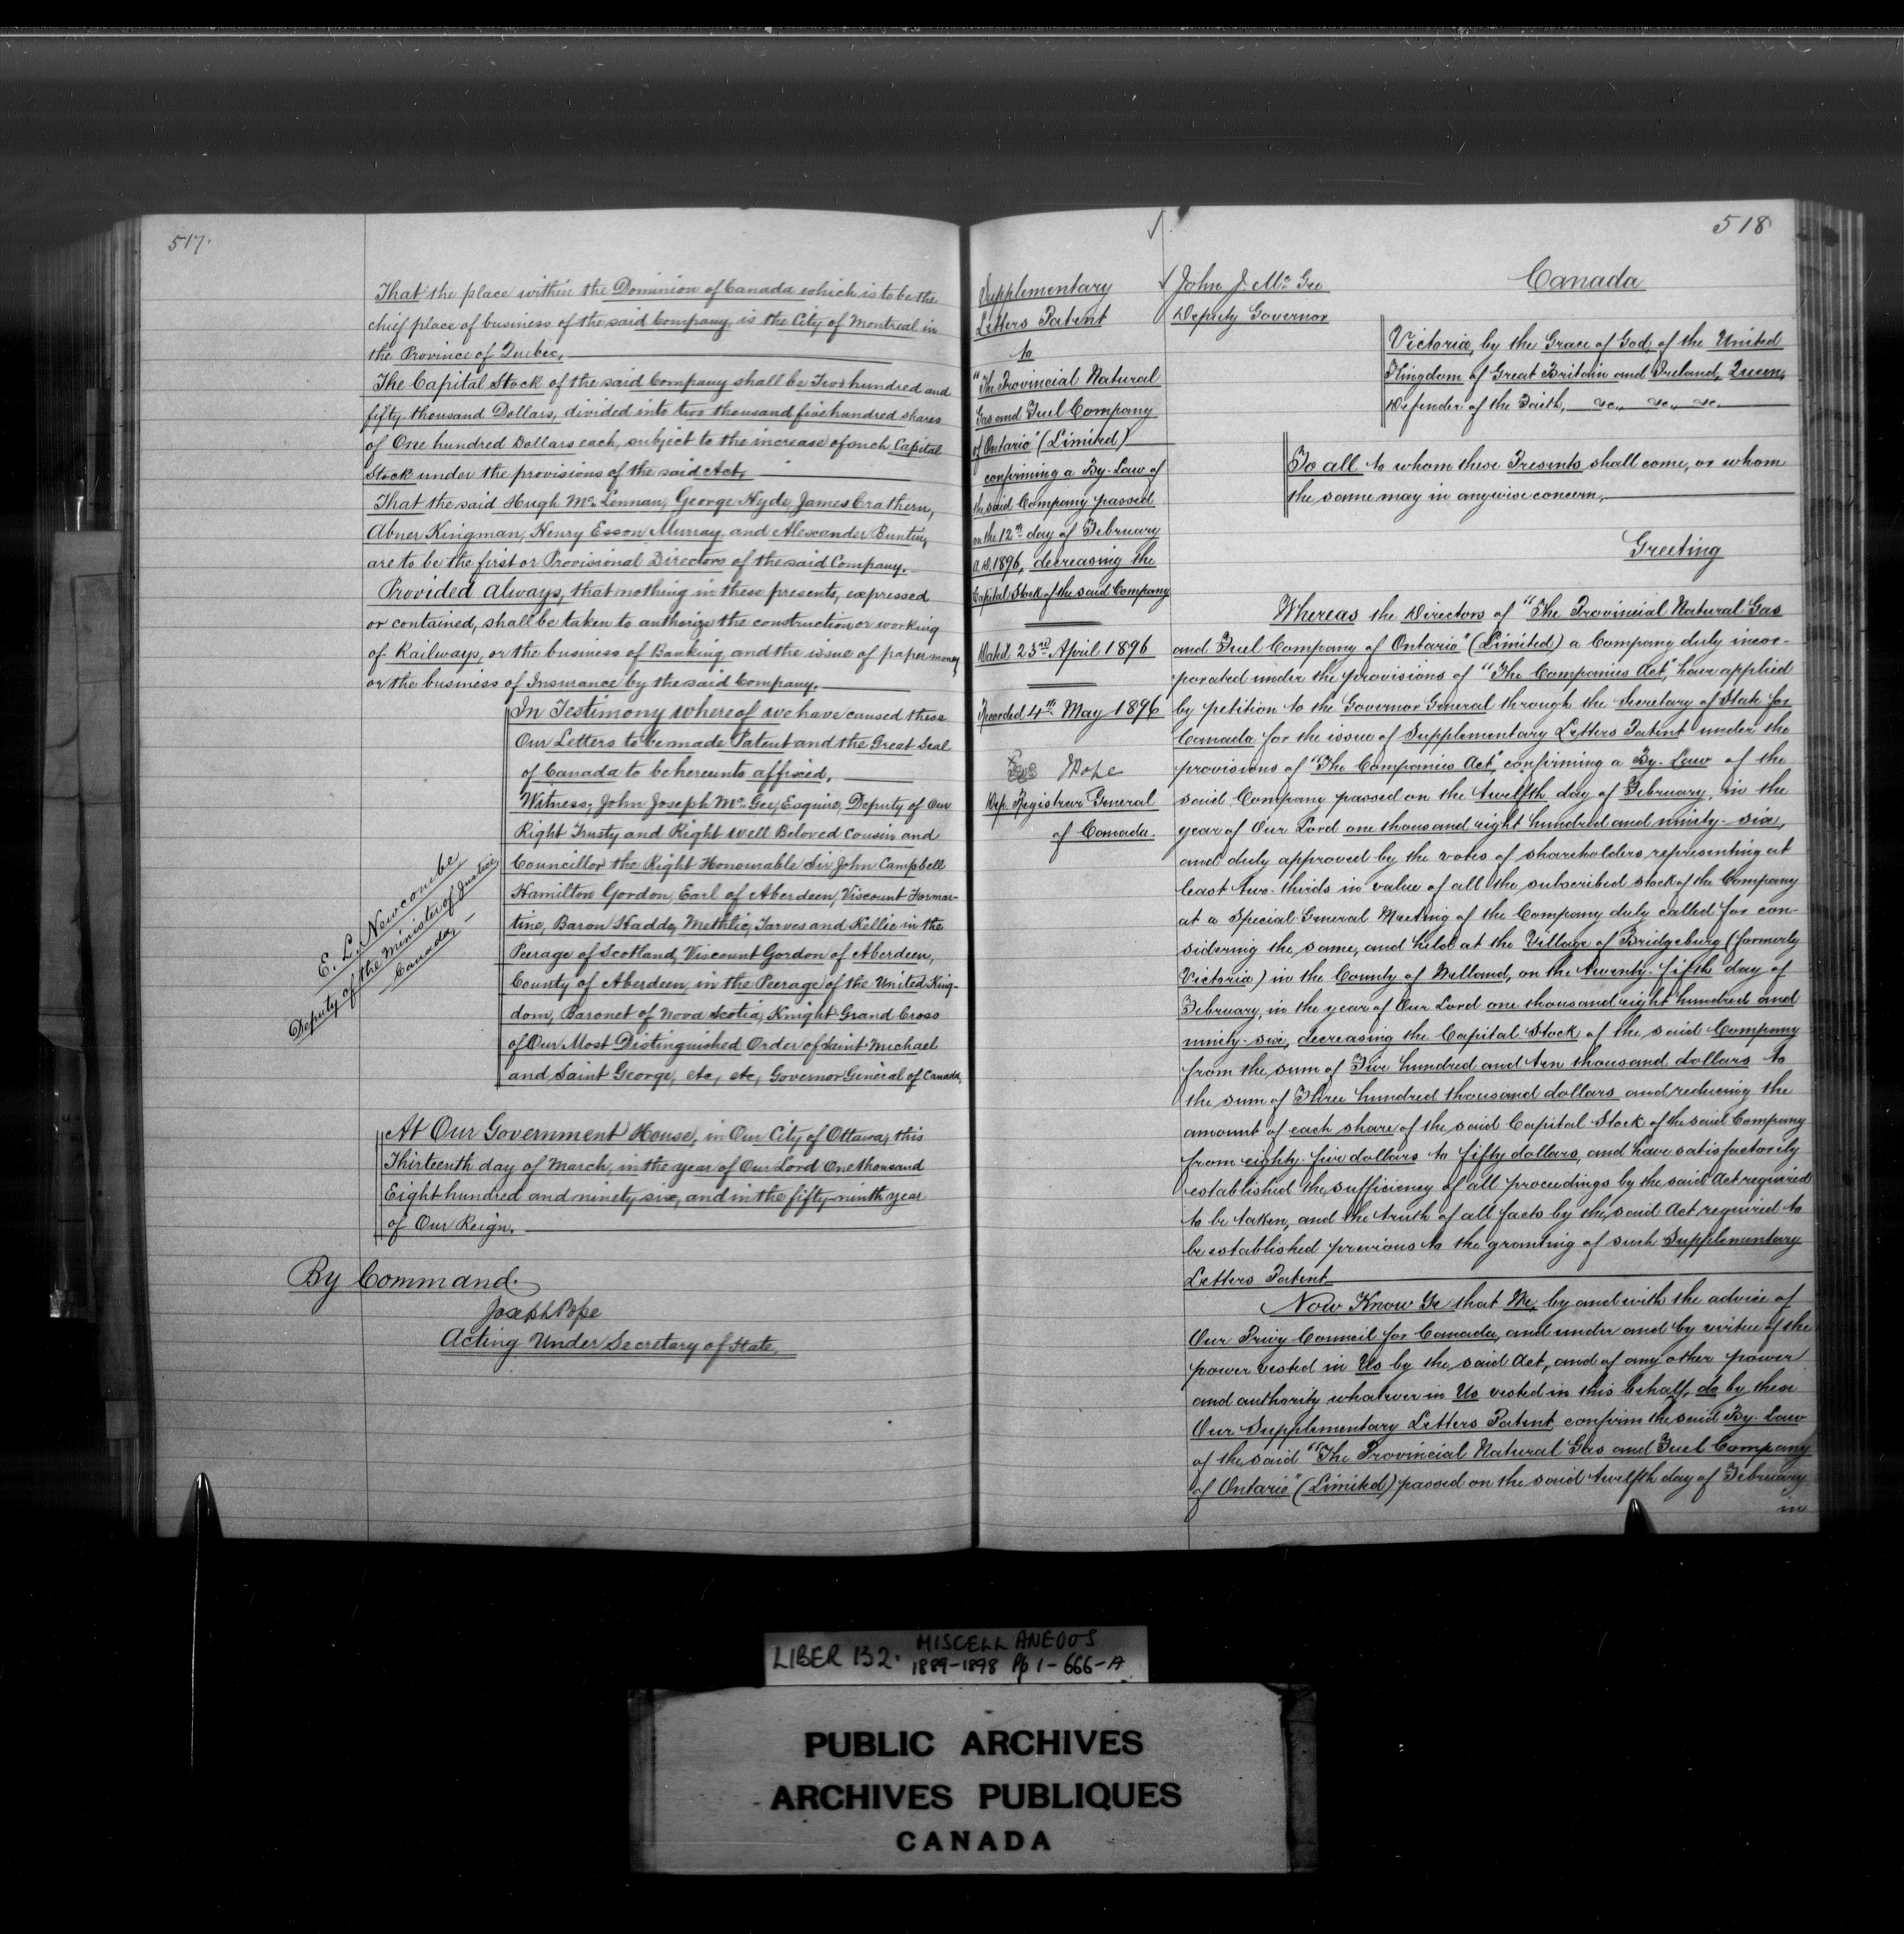 517.
That the place within the Dominion of Canada which is to be the
chief place of business of the said Company, is the City of Montreal in
the Province of Quebec,
The Capital Stock of the said Company shall be Two hundred and
fifty thousand Dollars, divided into two thousand five hundred shares
of One hundred Dollars each, subject to the increase of such Capital
Stock under the provisions of the said Act,
That the said Hugh Mc Lennan, George Hyde, James Crathern,
Abner Kingman, Henry Esson Murray and Alexander Bunting
are to be the first or Provisional Directors of the said Company.
Provided Always, that nothing in these presents, expressed
or contained, shall be taken to authorize the construction or working
of Railways, or the business of Banking and the issue of paper money,
or the business of Insurance by the said Company.
In Testimony whereof we have caused these
Our Letters to be made Patent and the Great Seal
of Canada to be hereunto affixed.
Witness, John Joseph Mc Gee, Esquire, Deputy of Our
Right Trusty and Right well Beloved Cousin and
Councillor the Right Honourable Sir John Campbell
Hamilton Gordon, Earl of Aberdeen, Viscount Formar-
tine, Baron Haddo, Methlic, Tarves and Kellie in the
Peerage of Scotland, Viscount Gordon of Aberdeen,
County of Aberdeen, in the Peerage of the United King-
dom, Baronet of Nova Scotia, Knight Grand Cross
of Our Most Distinguished Order of Saint Michael
and Saint George, etc, etc, Governor General of Canada,
E. L. Newcombe
Deputy of the Minister of Justice
Canada,
At Our Government House, in Our City of Ottawa, this
Thirteenth day of March, in the year of Our Lord One thousand
Eight hundred and ninety six, and in the fifty-ninth year
of Our Reign.
By Command.
Joseph Pope
Acting Under Secretary of State,
518
Supplementary
Letters Patent
to
"The Provincial Natural
Gas and Fuel Company
of Ontario" (Limited)
confirming a By-Law of
the said Company passed
on the 12th day of February
A.D. 1896, decreasing the
Capital Stock of the said Company
Dated 23rd April 1896
Recorded 4th May 1896
JPope
Dep. Registrar General
of Canada.
John J. Mc Gee
Deputy Governor
Canada
Victoria, by the Grace of God, of the United
Kingdom of Great Britain and Ireland, Queen,
Defender of the Faith, &c., &c., &c.
To all to whom these Presents shall come, or whom
the same may in anywise concern,
Greeting
Whereas the Directors of "The Provincial Natural Gas
and Fuel Company of Ontario" (Limited) a Company duly incor-
porated under the provisions of "The Companies Act", have applied
by petition to the Governor General through the Secretary of State for
Canada for the issue of Supplementary Letters Patent under the
provisions of "The Companies Act", confirming a By-Law of the
said Company passed on the twelfth day of February, in the
year of Our Lord one thousand eight hundred and ninety-six,
and duly approved by the votes of shareholders representing at
least two-thirds in value of all the subscribed stock of the Company
at a Special General Meeting of the Company duly called for con-
sidering the same, and held at the Village of Bridgeburg (formerly
Victoria) in the County of Welland, on the twenty-fifth day of
February, in the year of Our Lord one thousand eight hundred and
ninety-six, decreasing the Capital Stock of the said Company
from the sum of Five hundred and ten thousand dollars to
the sum of Three hundred thousand dollars and reducing the
amount of each share of the said Capital Stock of the said Company
from eighty-five dollars to fifty dollars, and have satisfactorily
established the sufficiency of all proceedings by the said Act required
to be taken, and the truth of all facts by the said Act required to
be established previous to the granting of such Supplementary
Letters Patent
Now Know Ye that We, by and with the advice of
Our Privy Council for Canada, and under and by virtue of the
power vested in Us by the said Act, and of any other power
and authority whatever in Us vested in this behalf, do by these
Our Supplementary Letters Patent confirm the said By-Law
of the said "The Provincial Natural Gas and Fuel Company
of Ontario" (Limited) passed on the said twelfth day of February
in
LIBER 132. MISCELLANEOUS
1889-1898 Pp 1-666-A
PUBLIC ARCHIVES
ARCHIVES PUBLIQUES
CANADA